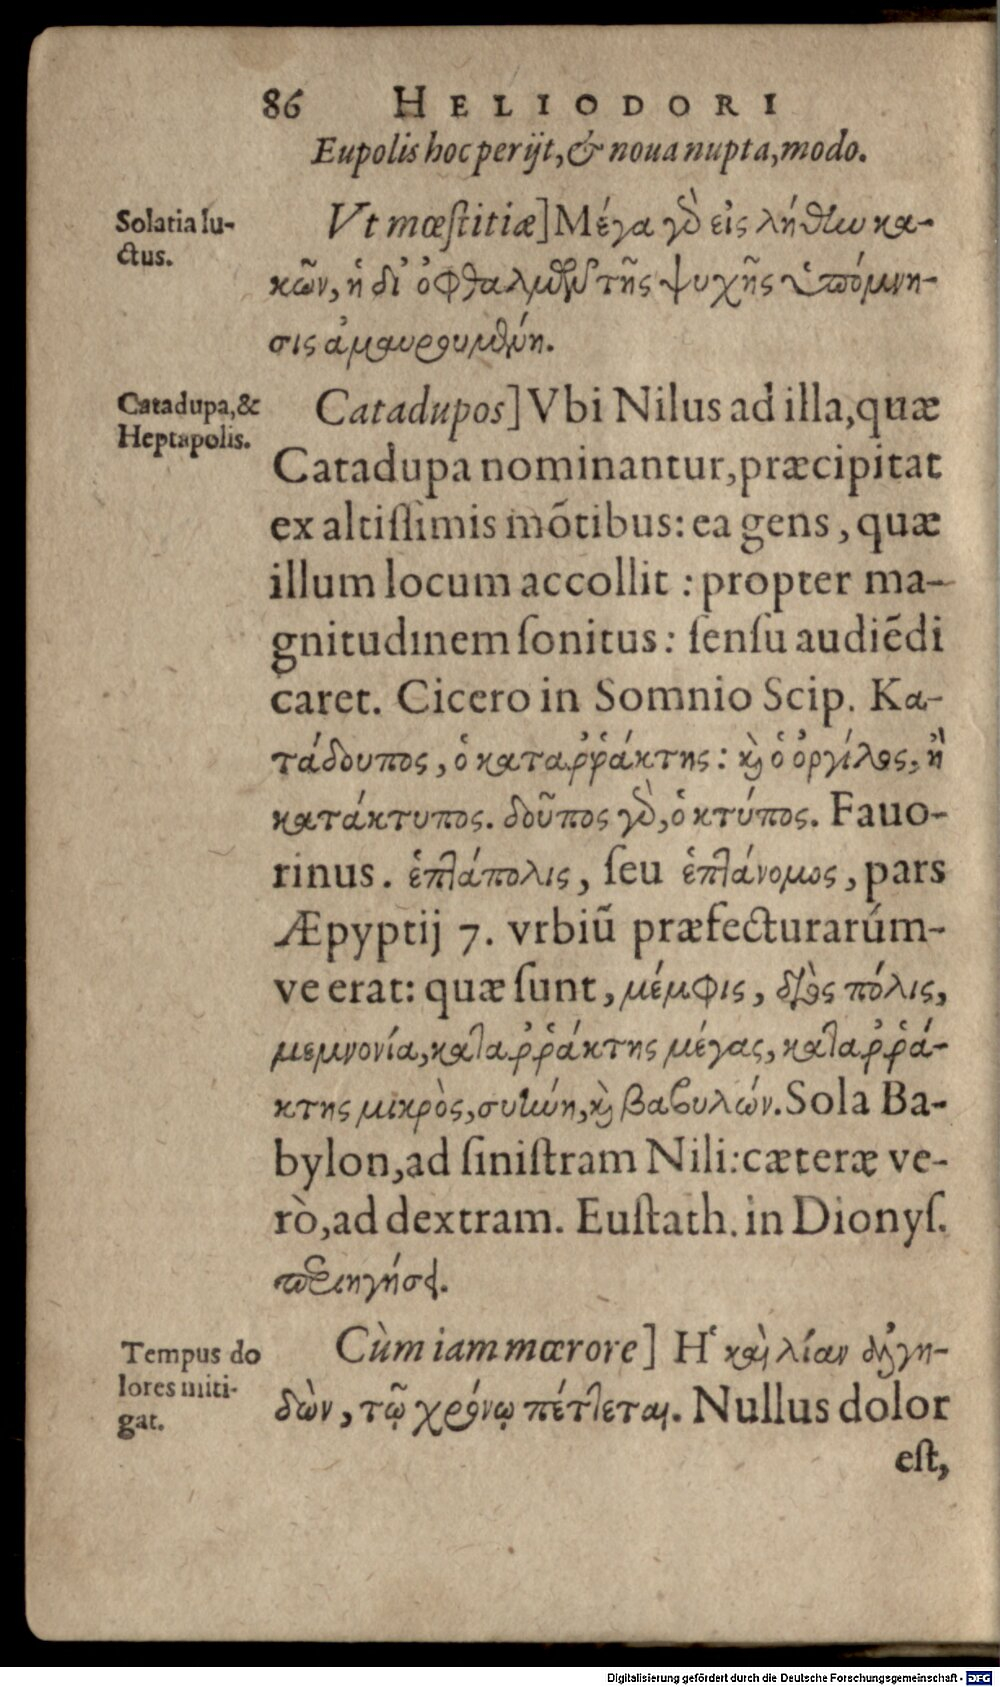 86 HELIODORI
Eupolis hoc perijt, & noua nupta, modo.
Solatia lu-
ctus.
Vt mœſtitiæ] Μέγα γδ̀ εἰς λήθἰω κα-
κῶν, ἡ δι᾽ ὀφθαλμῶν τῆς ψυχῆς ὑπόμνη-
σις ἀμαυρουμθμ́η.
Catadupa, &
Heptapolis.
Catadupos] Vbi Nilus ad illa, quæ
Catadupa nominantur, præcipitat
ex altiſſimis mõtibus: ea gens, quæ
illum locum accollit: propter ma-
gnitudinem ſonitus: ſenſu audiẽdi
caret. Cicero in Somnio Scip. Κα-
τάδουπος, ὁ καταῤῥάκτης: κ̀ ὁ ὀργίλος, ἢ
κατάκτυπος. δοῦπος γδ̀, ὁ κτύπος. Fauo-
rinus. ἑπτάπολις, ſeu ἑπτάνομος, pars
Æpyptij 7. vrbiũ præfecturarúm-
ve erat: quæ ſunt, μέμφις, διὸς πόλις,
μεμνονία, καταῤῥάκτης μέγας, καταῤῥά-
κτης μικρὸς, συἰώη, κ̀ βαβυλών. Sola Ba-
bylon, ad ſiniſtram Nili: cæteræ ve-
rò, ad dextram. Euſtath. in Dionyſ.
περιηγήσει.
Tempus do
lores miti-
gat.
Cùm iam mœrore] Ἡ καὶ λίαν ἀλγη-
δὼν, τῷ χρόνῳ πέττεται. Nullus dolor
eſt,
Digitalisierung gefördert durch die Deutsche Forschungsgemeinschaft - DFG